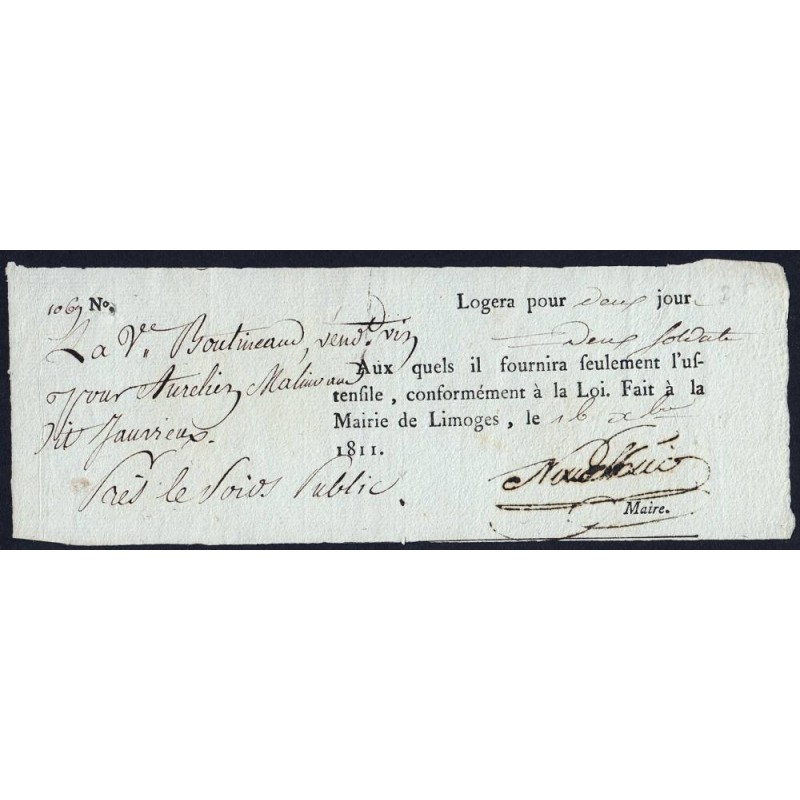 1069 No.
La Ve. Boutineaud, vendt. vin
pour Aurelien Malinvaud
dit Jauvieux.
Près le Poids Public.
Logera pour deux jour
Deux soldats
Aux quels il fournira seulement l'us-
tensile, conformément à la Loi. Fait à la
Mairie de Limoges, le 16 xbre
1811.
Maire.